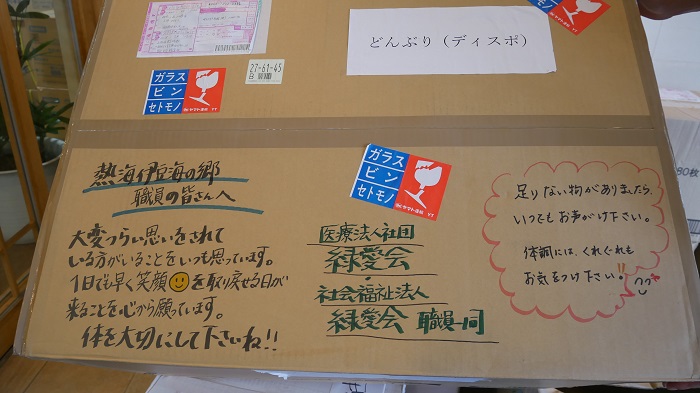 どんぶり（ディスポ）
27-61-45
ガラス
ビン
セトモノ
ヤマト運輸
熱海伊豆海の郷
職員の皆さんへ
大変つらい思いをされて
いる方がいることをいつも思っています。
1日でも早く笑顔を取り戻せる日が
来ることを心から願っています。
体を大切にして下さいね!!
ガラス
ビン
セトモノ
ヤマト運輸
医療法人社団
緑愛会
社会福祉法人
緑愛会 職員一同
足りない物がありましたら、
いつでもお声がけ下さい。
体調には、くれぐれも
お気をつけ下さい!!
80枚